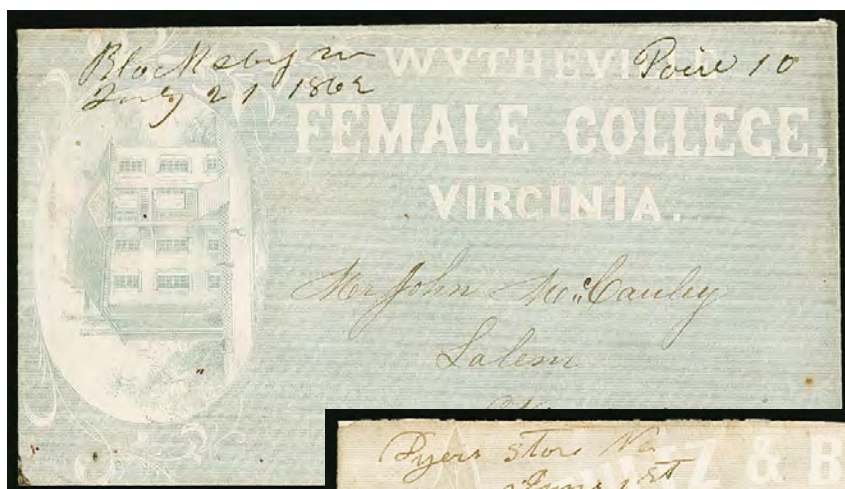 Blacksburg Va
July 21 1862
Paid 10
WYTHEVILLE
FEMALE COLLEGE,
VIRGINIA.
Mr John McCauley
Salem
Dyers Store Va
June 1st
Z & B